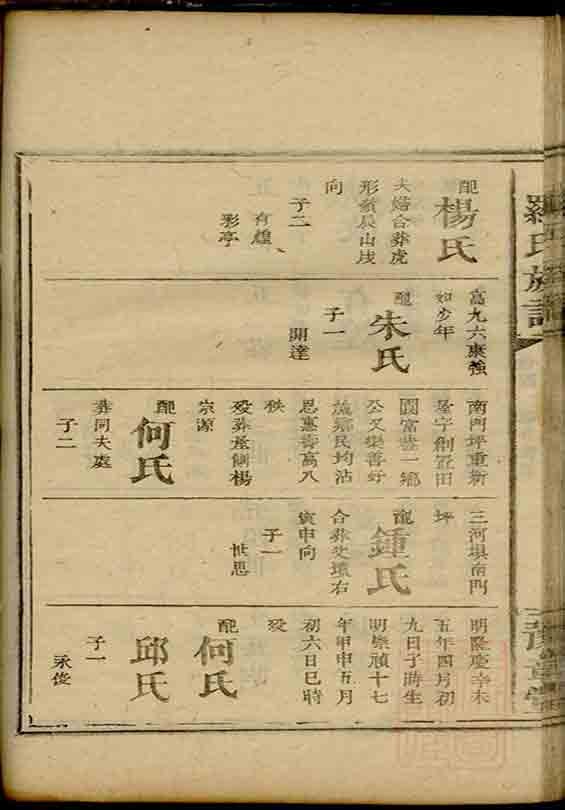 羅氏族譜
配楊氏
夫婦合葬虎
形癸辰山戌
向
子二
有煌
彩亭
高九六康強
如少年
配朱氏
子一
開達
南門坪重新
屋宇創置田
園富甞一鄉
公又樂善好
施鄉民均沾
恩惠壽高八
秩
歿葬屋側楊
宗源
配何氏
葬同夫處
子二
三河垻南門
坪
配鍾氏
合葬父墳右
寅申向
子一
世思
明隆慶辛未
五年四月初
九日子時生
明崇禎十七
年甲申五月
初六日巳時
歿
配何氏
邱氏
子一
永俊